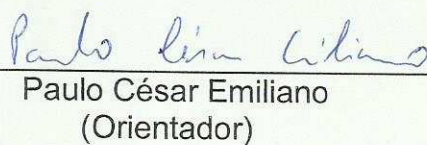 Paulo César Emiliano
Paulo César Emiliano
(Orientador)